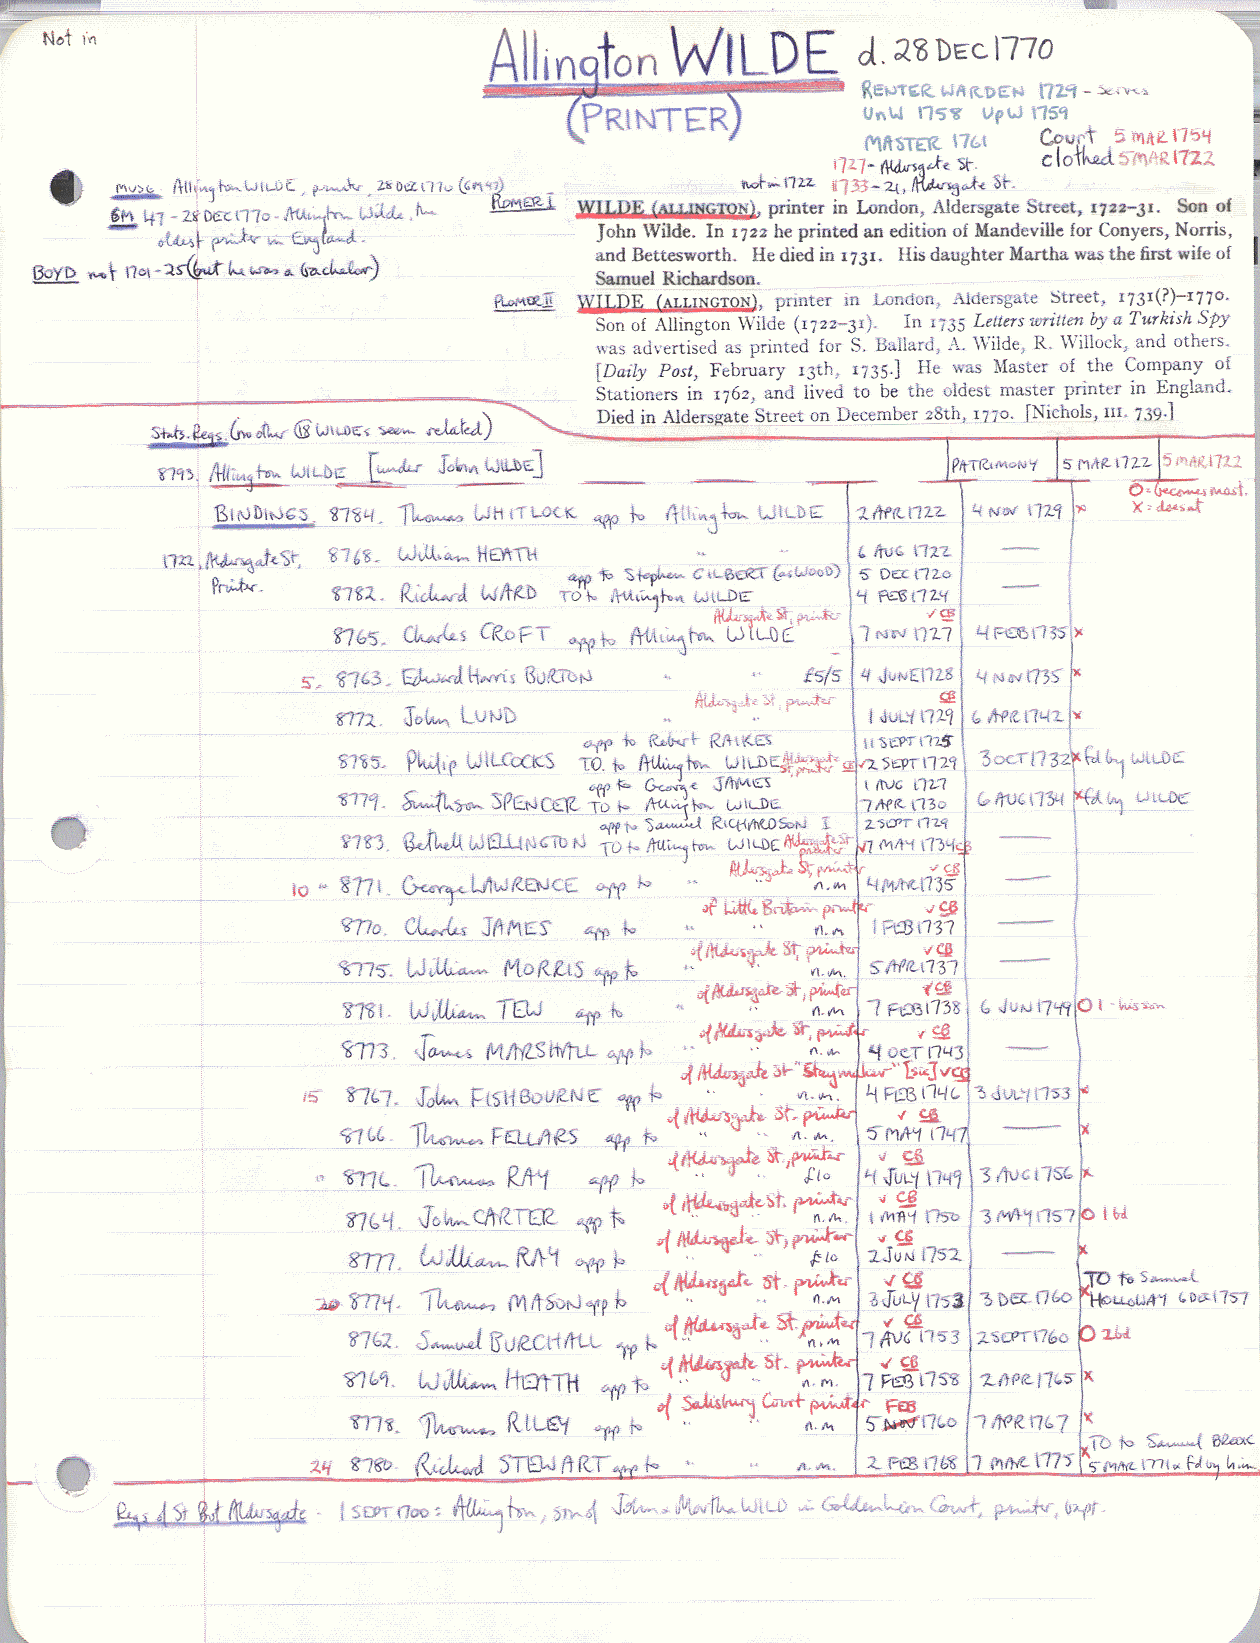 Not in
Allington WILDE d. 28 DEC 1770
(PRINTER)
RENTER WARDEN 1729 - serves
UnW 1758 UpW 1759
MASTER 1761 Court 5 MAR 1754
clothed 5 MAR 1722
1727 - Aldersgate St.
not in 1722 1733 - 21, Aldersgate St.
MUSG. Allington WILDE, printer, 28 DEC 1770 (GM 47)
GM 47 - 28 DEC 1770 - Allington Wilde, the
oldest printer in England.
BOYD not 1701-25 (but he was a bachelor)
PLOMER I
WILDE (ALLINGTON), printer in London, Aldersgate Street, 1722–31. Son of
John Wilde. In 1722 he printed an edition of Mandeville for Conyers, Norris,
and Bettesworth. He died in 1731. His daughter Martha was the first wife of
Samuel Richardson.
PLOMER II
WILDE (ALLINGTON), printer in London, Aldersgate Street, 1731(?)–1770.
Son of Allington Wilde (1722–31). In 1735 Letters written by a Turkish Spy
was advertised as printed for S. Ballard, A. Wilde, R. Willock, and others.
[Daily Post, February 13th, 1735.] He was Master of the Company of
Stationers in 1762, and lived to be the oldest master printer in England.
Died in Aldersgate Street on December 28th, 1770. [Nichols, III. 739.]
Stats. Regs. (no other 18 WILDEs seem related)
8793. Allington WILDE [under John WILDE] PATRIMONY 5 MAR 1722 5 MAR 1722
O = becomes mast.
X = doesnt
BINDINGS 8784. Thomas WHITLOCK app to Allington WILDE 2 APR 1722 4 NOV 1729 x
1722, Aldersgate St, 8768. William HEATH " " 6 AUG 1722 —
Printer.
app to Stephen GILBERT (as WOOD) 5 DEC 1720
8782. Richard WARD TO to Allington WILDE 4 FEB 1724 —
Aldersgate St, printer v CB
8765. Charles CROFT app to Allington WILDE 7 NOV 1727 4 FEB 1735 x
5. 8763. Edward Harris BURTON " " £5/5 4 JUNE 1728 4 NOV 1735 x
Aldersgate St, printer CB
8772. John LUND " " 1 JULY 1729 6 APR 1742 x
app to Robert RAIKES 11 SEPT 1725
8785. Philip WILCOCKS TO. to Allington WILDE Aldersgate St, printer CB v 2 SEPT 1729 3 OCT 1732 x fd by WILDE
app to George JAMES 1 AUG 1727
8779. Smithson SPENCER TO to Allington WILDE 7 APR 1730 6 AUG 1734 x fd by WILDE
app to Samuel RICHARDSON I 2 SEPT 1729
8783. Bethell WELLINGTON TO to Allington WILDE Aldersgate St printer v 7 MAY 1734 CB —
Aldersgate St, printer v CB
10 - 8771. George LAWRENCE app to " " n.m 4 MAR 1735 —
of Little Britain printer v CB
8770. Charles JAMES app to " " n.m. 1 FEB 1737 —
of Aldersgate St, printer v CB
8775. William MORRIS app to " " n.m. 5 APR 1737 —
of Aldersgate St, printer v CB
8781. William TEW app to " " n.m 7 FEB 1738 6 JUN 1749 O 1 - his son
of Aldersgate St, printer v CB
8773. James MARSHALL app to " " n.m. 4 OCT 1743 —
of Aldersgate St "Staymaker" [sic] v CB
15 8767. John FISHBOURNE app to " " n.m. 4 FEB 1746 3 JULY 1753 x
of Aldersgate St. printer v CB
8766. Thomas FELLARS app to " " n.m. 5 MAY 1747 — x
of Aldersgate St., printer v CB
8776. Thomas RAY app to £10 4 JULY 1749 3 AUG 1756 x
of Aldersgate St. printer v CB
8764. John CARTER app to " " n.m. 1 MAY 1750 3 MAY 1757 O 1 bd
of Aldersgate St, printer v CB
8777. William RAY app to " " £10 2 JUN 1752 — x
of Aldersgate St. printer v CB TO to Samuel
20 8774. Thomas MASON app to " " n.m 3 JULY 1753 3 DEC 1760 x HOLLOWAY 6 DEC 1757
of Aldersgate St. printer v CB
8762. Samuel BURCHALL app to " " n.m 7 AUG 1753 2 SEPT 1760 O 2 bd
of Aldersgate St. printer v CB
8769. William HEATH app to " " n.m. 7 FEB 1758 2 APR 1765 x
of Salisbury Court printer FEB
8778. Thomas RILEY app to " " n.m 5 NOV 1760 7 APR 1767 x
TO to Samuel
24 8780. Richard STEWART app to " " n.m. 2 FEB 1768 7 MAR 1775 x 5 MAR 1771 x fd by him
Regs of St Bot Aldersgate - 1 SEPT 1700: Allington, son of John & Martha WILD in Goldenheion Court, printer, bapt.